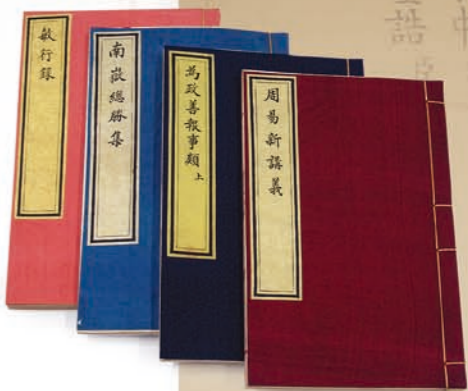 敏行錄
南嶽總勝集
為政善報事類 上
周易新講義
誥